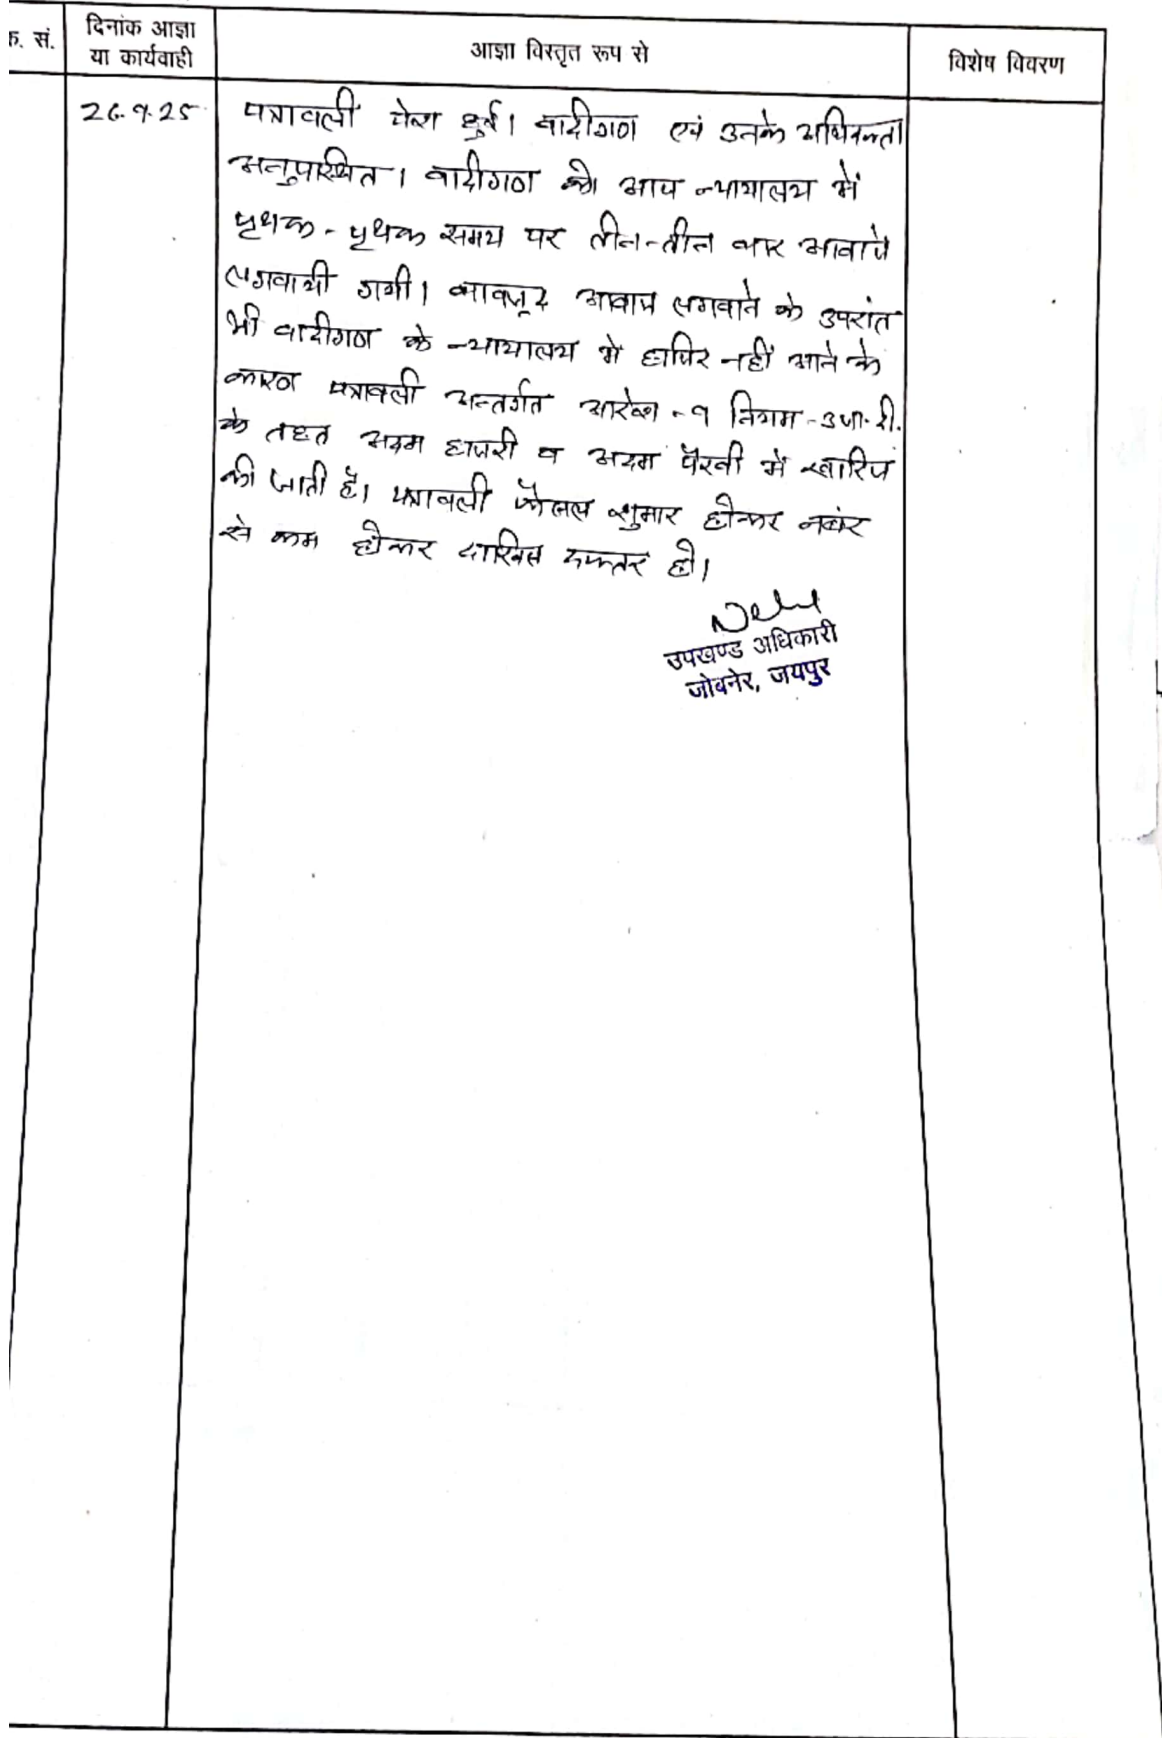 क. सं.
दिनांक आज्ञा
या कार्यवाही
आज्ञा विस्तृत रूप से
विशेष विवरण
26.9.25
पत्रावली पेश हुई। वादीगण एवं उनके अधिवक्ता
अनुपस्थित। वादीगण को आज न्यायालय में
पृथक-पृथक समय पर तीन-तीन बार आवाजे
लगवायी गयी। बावजूद आवाज लगवाने के उपरांत
भी वादीगण के न्यायालय में हाजिर नहीं आने के
कारण पत्रावली अन्तर्गत आदेश-9 नियम-3
के तहत अदम हाजरी व अदम पैरवी में खारिज
की जाती है। पत्रावली फैसल शुमार होकर नबंर
से कम होकर दाखिल दफ्तर हो।
उपखण्ड अधिकारी
जोबनेर, जयपुर